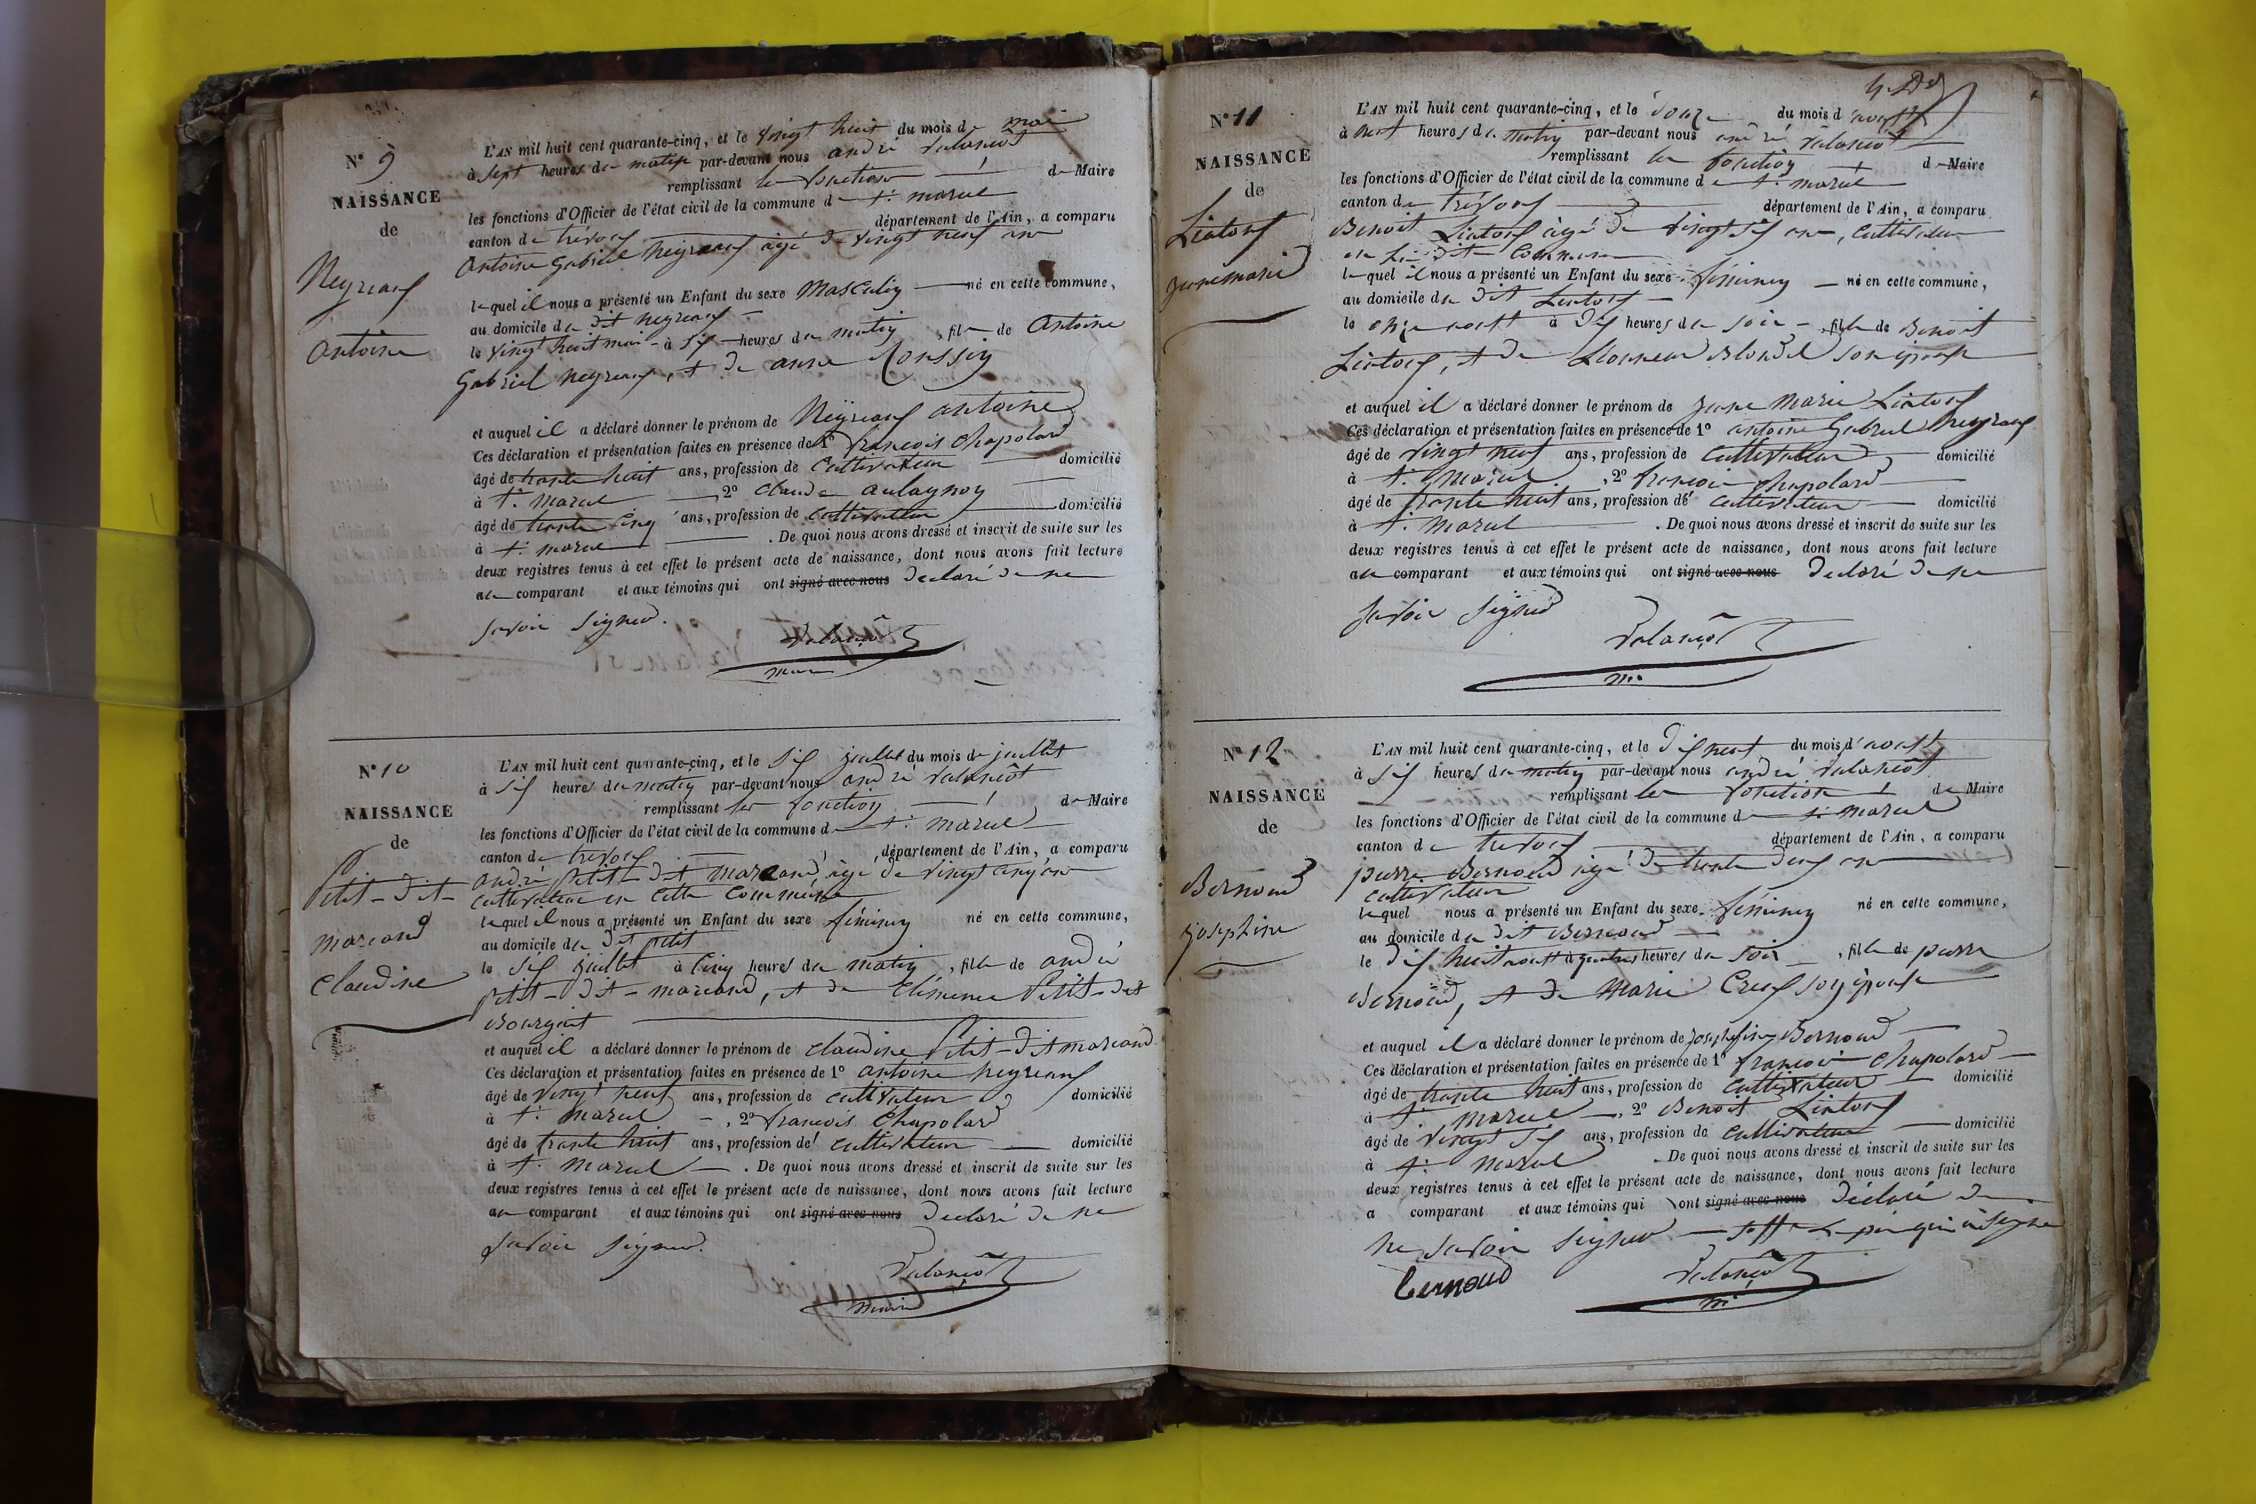 N° 9
NAISSANCE
de
Neyreauf
antoine
L'AN mil huit cent quarante-cinq, et le vingt huit du mois de mai
à sept heures du matin par-devant nous andré valansot
remplissant les fonctions de Maire
les fonctions d'Officier de l'état civil de la commune de st. marcel
canton de trévoux département de l'Ain, a comparu
antoine Gabriel neyreauf agé de vingt neuf an
lequel il nous a présenté un Enfant du sexe masculin né en cette commune,
au domicile du dit neyreauf
le vingt huit mai à six heures du matin, fils de Antoine
Gabriel neyreauf, et de anne Roussin
et auquel il a déclaré donner le prénom de Neyreauf antoine
Ces déclaration et présentation faites en présence de 1° francois Chapolard
âgé de trante huit ans, profession de cultivateur domicilié
à st. marcel, 2° claude aulagnon
âgé de trante cinq ans, profession de cultivateur domicilié
à st. marcel. De quoi nous avons dressé et inscrit de suite sur les
deux registres tenus à cet effet le présent acte de naissance, dont nous avons fait lecture
au comparant et aux témoins qui ont signé avec nous déclaré de ne
savoir signer.
valansot
maire
N° 10
NAISSANCE
de
Petit-dit-
marcand
claudine
L'AN mil huit cent quarante-cinq, et le six juillet du mois de juillet
à six heures du matin par-devant nous andré valansot
remplissant les fonction de Maire
les fonctions d'Officier de l'état civil de la commune de st. marcel
canton de trévoux département de l'Ain, a comparu
andré petit-dit marcand agé de vingt cinq an
cultivateur en cette commune
lequel il nous a présenté un Enfant du sexe féminin né en cette commune,
au domicile du dit petit
le six juillet à cinq heures du matin, fille de andré
petit-dit-marcand, et de clémence Petit-dit
Bourgeat
et auquel il a déclaré donner le prénom de claudine Petit-dit marcand
Ces déclaration et présentation faites en présence de 1° antoine neyreauf
âgé de vingt neuf ans, profession de cultivateur domicilié
à st. marcel, 2° francois Chapolard
âgé de trante huit ans, profession de cultivateur domicilié
à st. marcel. De quoi nous avons dressé et inscrit de suite sur les
deux registres tenus à cet effet le présent acte de naissance, dont nous avons fait lecture
au comparant et aux témoins qui ont signé avec nous déclaré de ne
savoir signer.
valansot
maire
N° 11
NAISSANCE
de
Liatouf
jeanne marie
L'AN mil huit cent quarante-cinq, et le douze du mois d'aoust
à huit heures du matin par-devant nous andré valansot
remplissant les fonction de Maire
les fonctions d'Officier de l'état civil de la commune de st. marcel
canton de trévoux département de l'Ain, a comparu
Benoit Liatouf agé de vingt six an, cultivateur
en la dite commune
lequel il nous a présenté un Enfant du sexe féminin né en cette commune,
au domicile du dit Liatouf
le onze aoust à dix heures du soir, fille de Benoit
Liatouf, et de Blondel son épouse
et auquel il a déclaré donner le prénom de jeane marie Liatouf
Ces déclaration et présentation faites en présence de 1° antoine Gabriel neyreauf
âgé de vingt neuf ans, profession de cultivateur domicilié
à st. marcel, 2° francois chapolard
âgé de trante huit ans, profession de cultivateur domicilié
à st. marcel. De quoi nous avons dressé et inscrit de suite sur les
deux registres tenus à cet effet le présent acte de naissance, dont nous avons fait lecture
au comparant et aux témoins qui ont signé avec nous déclaré de ne
savoir signer
valansot
N° 12
NAISSANCE
de
Bernoud
josephine
L'AN mil huit cent quarante-cinq, et le dix neuf du mois d'aoust
à six heures du matin par-devant nous andré valansot
remplissant les fonction de Maire
les fonctions d'Officier de l'état civil de la commune de st. marcel
canton de trévoux département de l'Ain, a comparu
pierre Bernoud agé de trante deux an
cultivateur
lequel nous a présenté un Enfant du sexe féminin né en cette commune,
au domicile du dit Bernoud
le dix huit aoust à quatre heures du soir, fille de pierre
Bernoud, et de marie Creuf son épouse
et auquel il a déclaré donner le prénom de josephine Bernoud
Ces déclaration et présentation faites en présence de 1° francois chapolard
âgé de trante huit ans, profession de cultivateur domicilié
à st. marcel, 2° Benoit Liatouf
âgé de vingt six ans, profession de cultivateur domicilié
à st. marcel. De quoi nous avons dressé et inscrit de suite sur les
deux registres tenus à cet effet le présent acte de naissance, dont nous avons fait lecture
a comparant et aux témoins qui ont signé avec nous déclaré de
ne savoir signer le père qui a signé
bernoud valansot